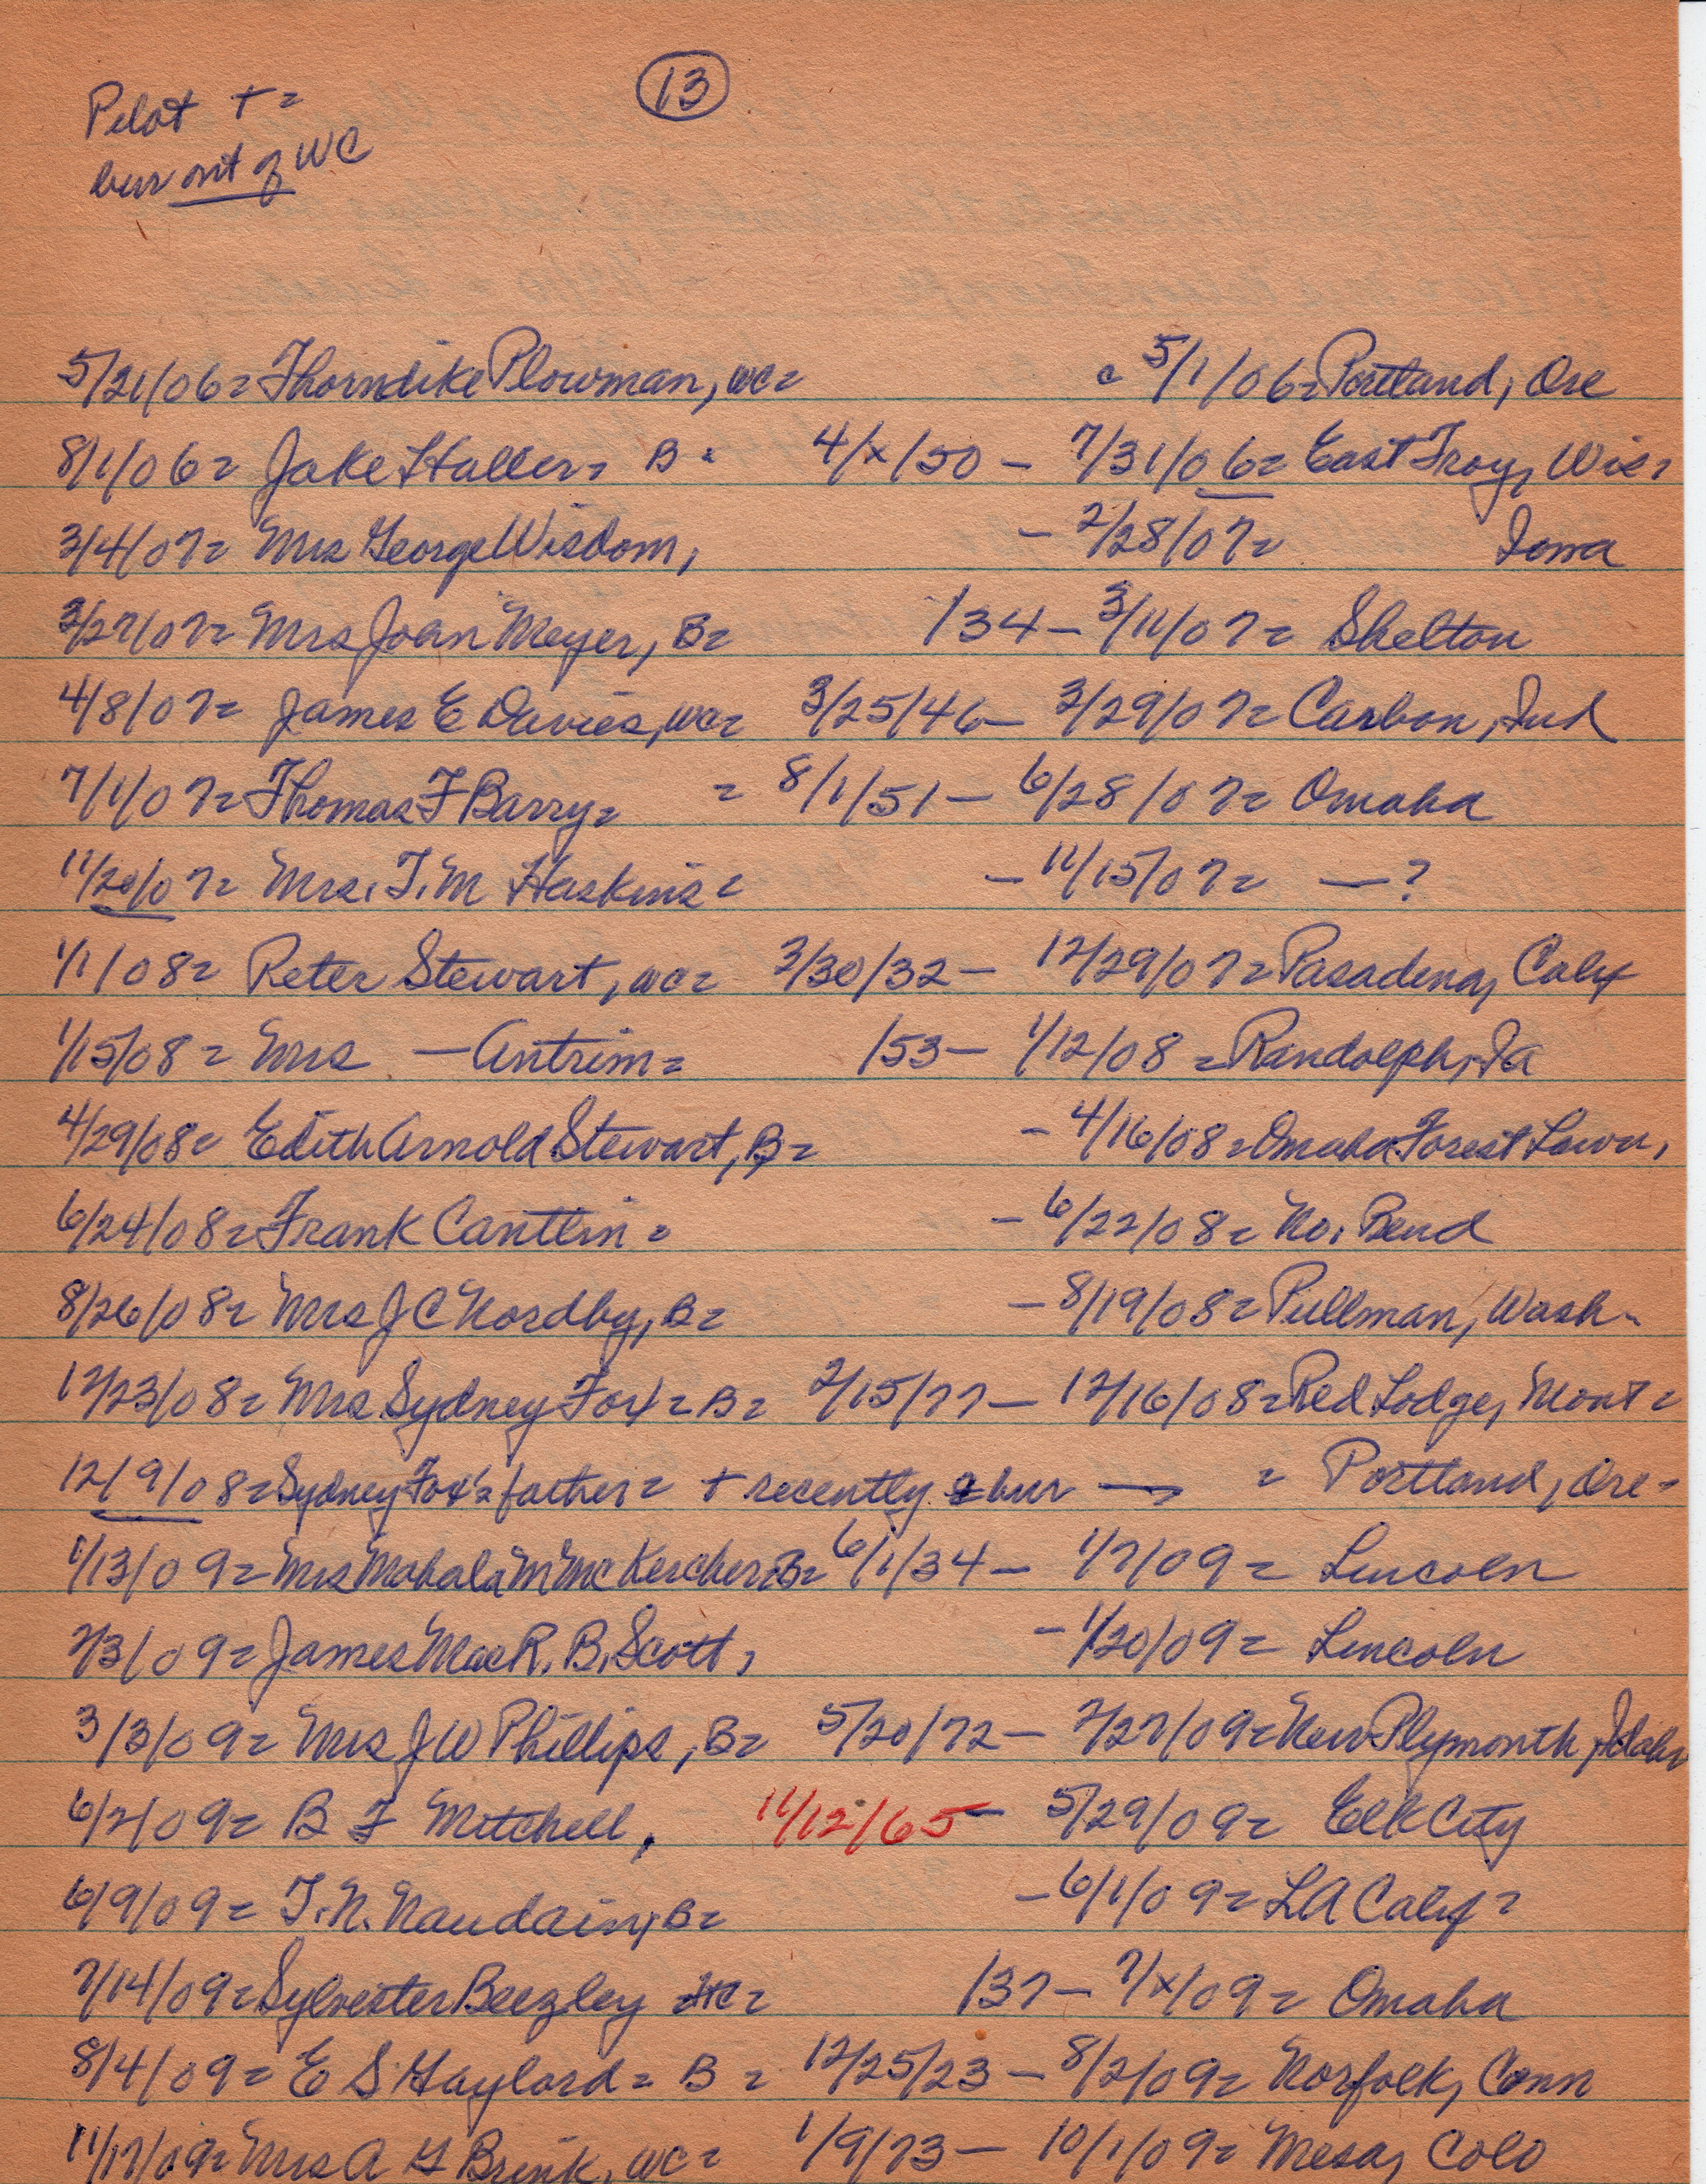 13
Pilot + =
bur out of WC
5/21/06= Thorndike Plowman, WC= c 5/1/06= Portland, Ore
8/1/06= Jake Haller= B = 4/x/50 – 7/31/06= East Troy, Wis=
3/4/07= Mrs George Wisdom, – 2/28/07= Iowa
3/27/07= Mrs John Meyer, B= /34 – 3/11/07= Shelton
4/8/07= James E Davies, WC= 3/25/46 – 3/29/07= Carbon, Ind
7/1/07= Thomas F Barry= = 8/1/51 – 6/28/07= Omaha
11/20/07= Mrs. T. M Haskins= – 11/15/07= — ?
1/1/08= Peter Stewart, WC= 3/30/32 – 12/29/07= Pasadena, Calif
1/15/08= Mrs — Antrim= /53 – 1/12/08= Randolph, Ia
4/29/08= Edith Arnold Stewart, B= – 4/16/08= Omaha Forest Lawn,
6/24/08= Frank Cantlin= – 6/22/08= No. Bend
8/26/08= Mrs J C Nordby, B= – 8/19/08= Pullman, Wash-
12/23/08= Mrs Sydney Fox= B= 2/15/77 – 12/16/08= Red Lodge, Mont=
12/9/08= Sydney Fox's father= + recently & bur — = Portland, Ore-
1/13/09= Mrs Mahala M McKercher, B= 6/1/34 – 1/7/09= Lincoln
2/3/09= James MacR. B. Scott, – 1/20/09= Lincoln
3/3/09= Mrs J W Phillips, B= 5/20/72 – 2/27/09= New Plymouth, Idaho
6/2/09= B F Mitchell, 11/12/65 – 5/29/09= Elk City
6/9/09= T. N. Naudain, B= – 6/1/09= LA Calif=
7/14/09= Sylvester Beezley = /37 – 7/x/09= Omaha
8/4/09= E S Gaylord= B = 12/25/23 – 8/2/09= Norfolk, Conn
11/17/09= Mrs A G Brink, WC= 1/9/73 – 10/1/09= Mesa, Colo